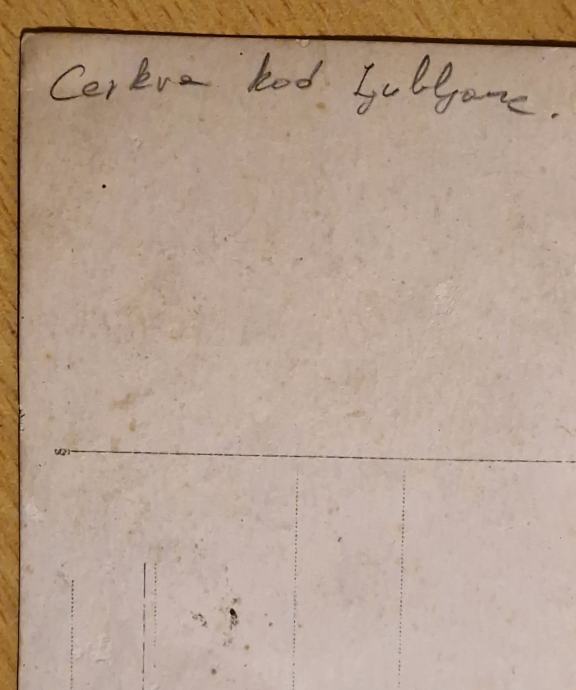 Cerkva kod Ljubljane.